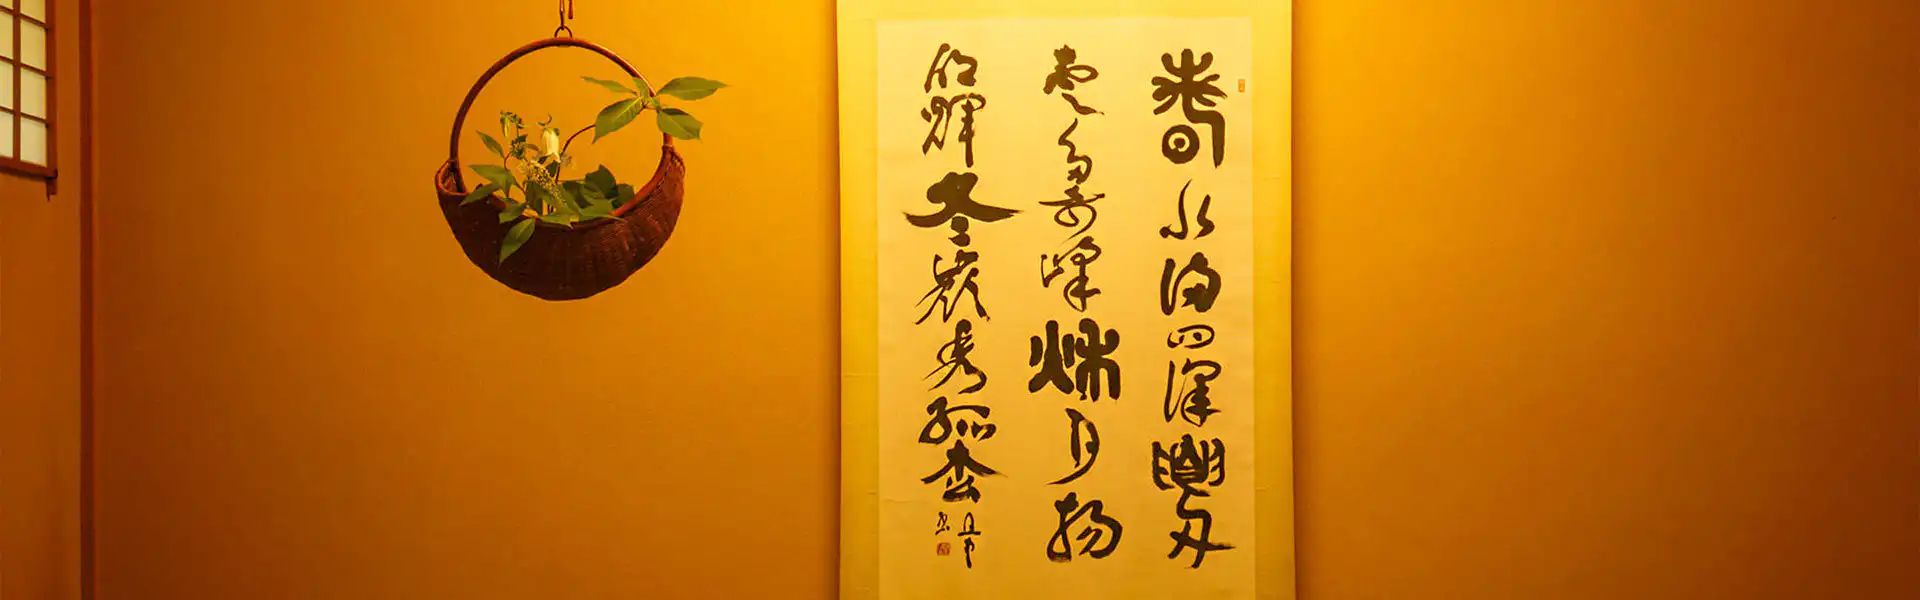 春水満四澤夏
雲多奇峰秋月揚
明輝冬嶺秀孤松